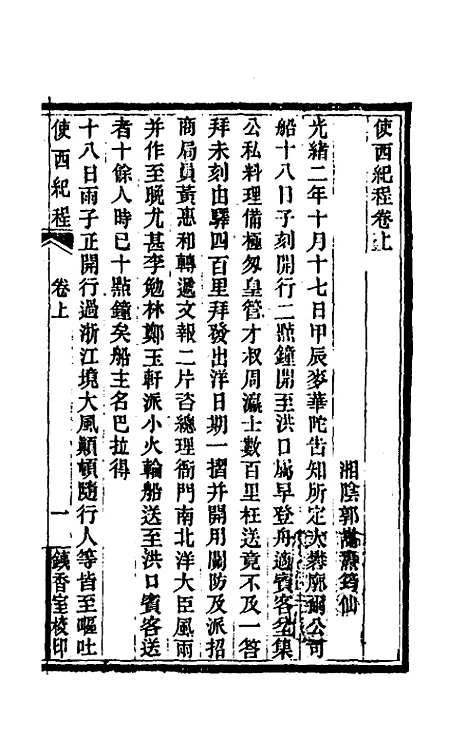 使西紀程卷上
湘陰郭嵩燾筠仙
光緒二年十月十七日甲辰麥華陀告知所定大礬廓爾公司
船十八日子刻開行二點鐘開至洪口屬早登舟適賓客坌集
公私料理備極匆皇管才叔周瀛士數百里枉送竟不及一答
拜未刻由驛四百里拜發出洋日期一摺并開用關防及派招
商局員黃惠和轉遞文報二片咨總理衙門南北洋大臣風雨
并作至晚尤甚李勉林鄭玉軒派小火輪船送至洪口賓客送
者十餘人時已十點鐘矣船主名巴拉得
十八日雨子正開行過浙江境大風顛頓隨行人等皆至嘔吐
使西紀程 卷上 一 鐵香室校印